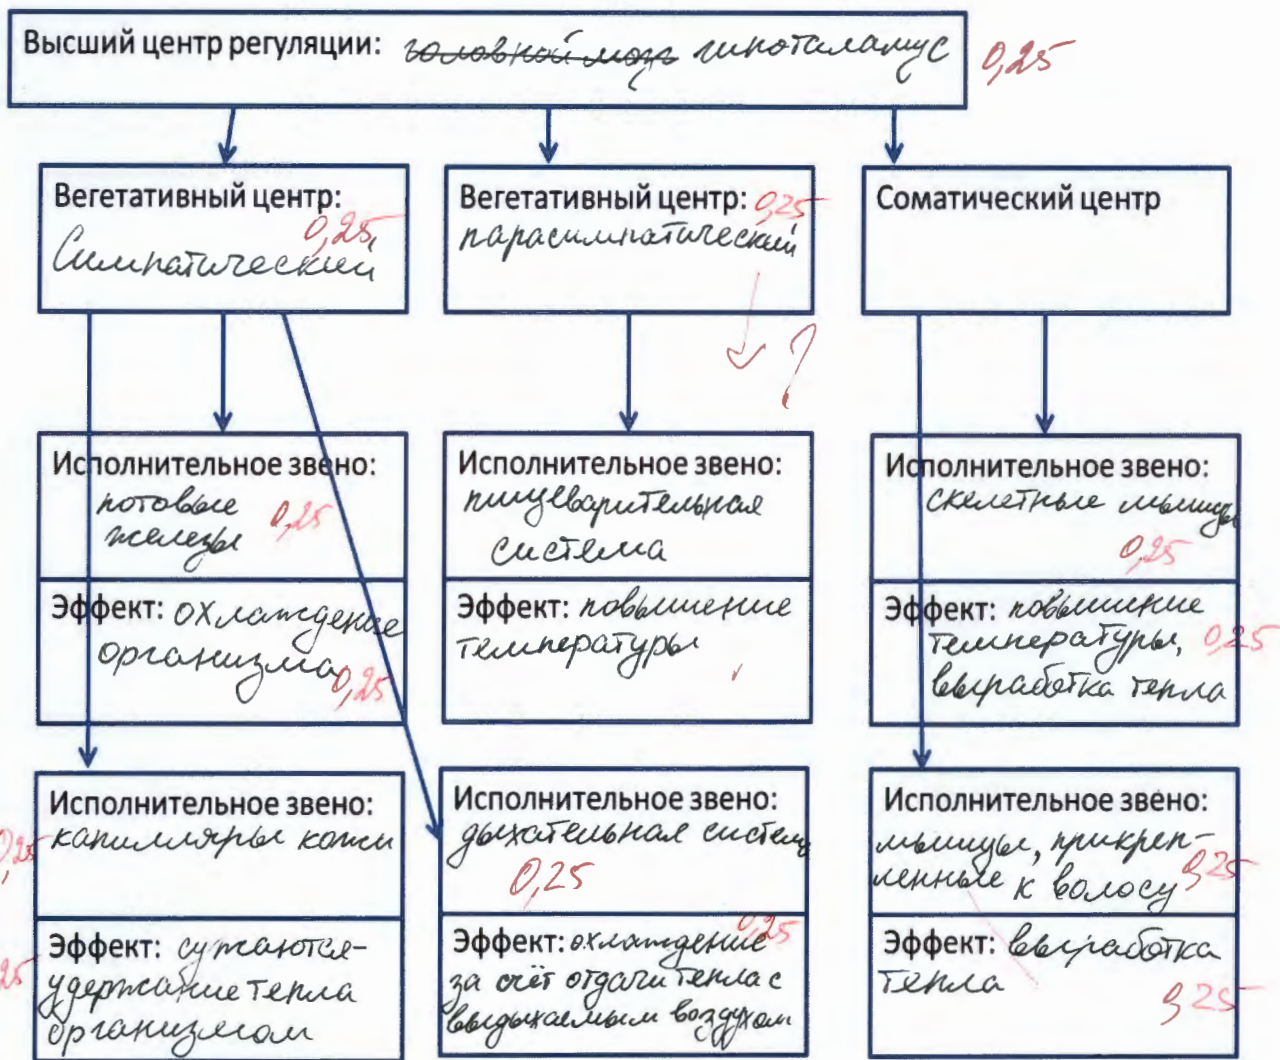 Высший центр регуляции: головной мозг гипоталамус 0,25
Вегетативный центр:
0,25
Симпатический
Вегетативный центр: 0,25
парасимпатический
Соматический центр
?
Исполнительное звено:
потовые
железы 0,25
Эффект: охлаждение
организма 0,25
Исполнительное звено:
пищеварительная
система
Эффект: повышение
температуры
Исполнительное звено:
скелетные мышцы
0,25
Эффект: повышение
температуры, 0,25
выработка тепла
Исполнительное звено:
0,25 капилляры кожи
Эффект: сужаются-
25 удержание тепла
организмом
Исполнительное звено:
дыхательная система
0,25
Эффект: охлаждение 0,25
за счёт отдачи тепла с
выдыхаемым воздухом
Исполнительное звено:
мышцы, прикреп-
ленные к волосу 0,25
Эффект: выработка
тепла
0,25